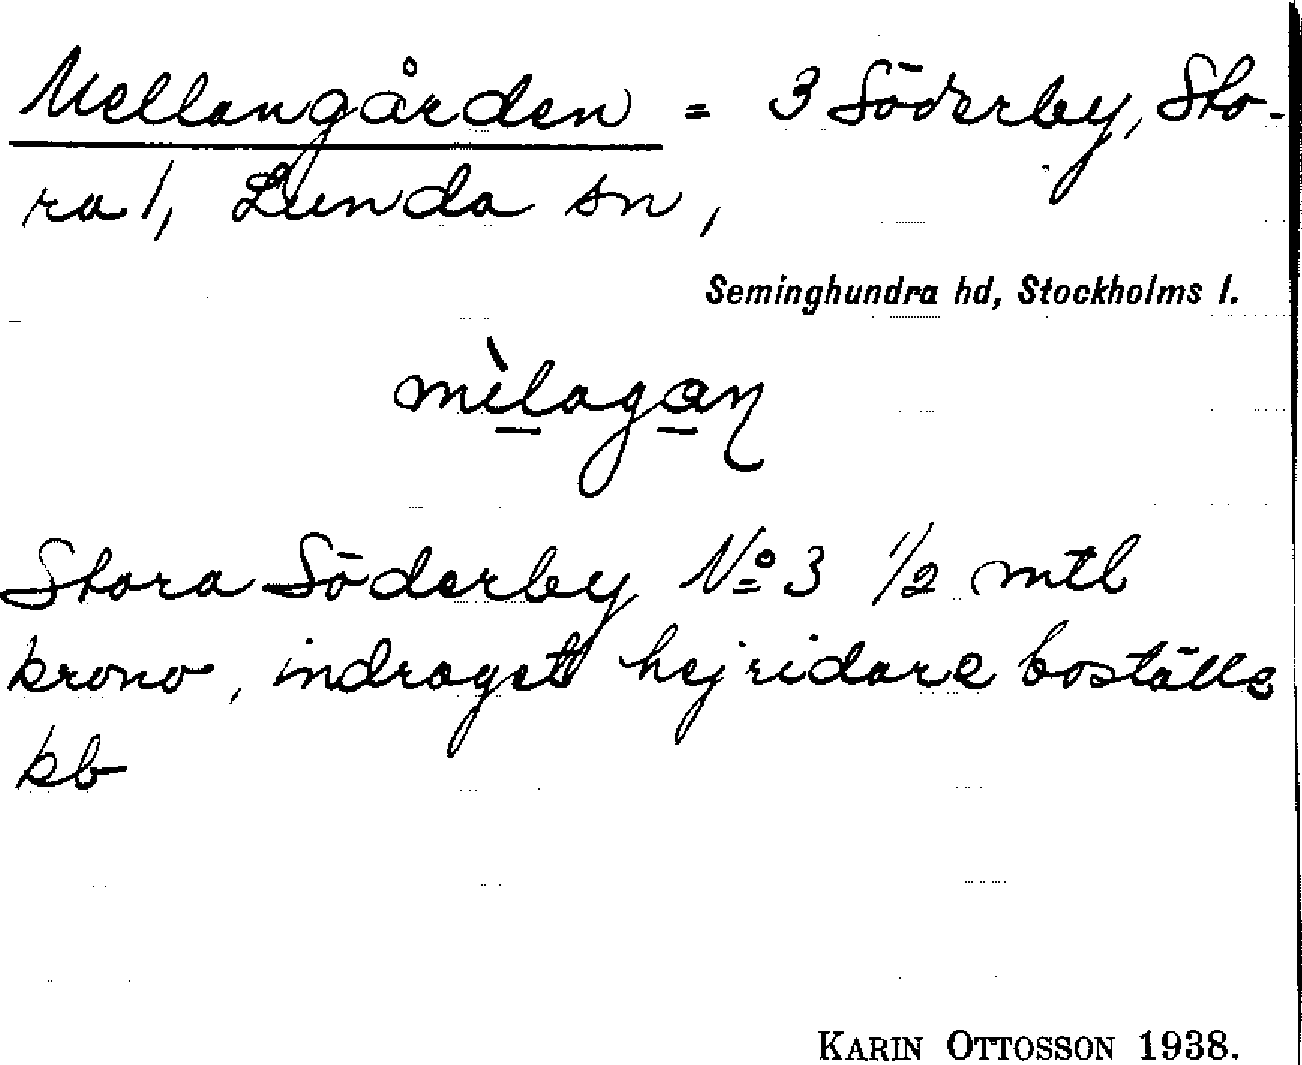 Mellangården = 3 Söderby, Sto-
ra 1, Lunda sn,
Seminghundra hd, Stockholms l.
Stora Söderby No 3 1/2 mtl
krono, indraget hejridare boställe
kb
KARIN OTTOSSON 1938.